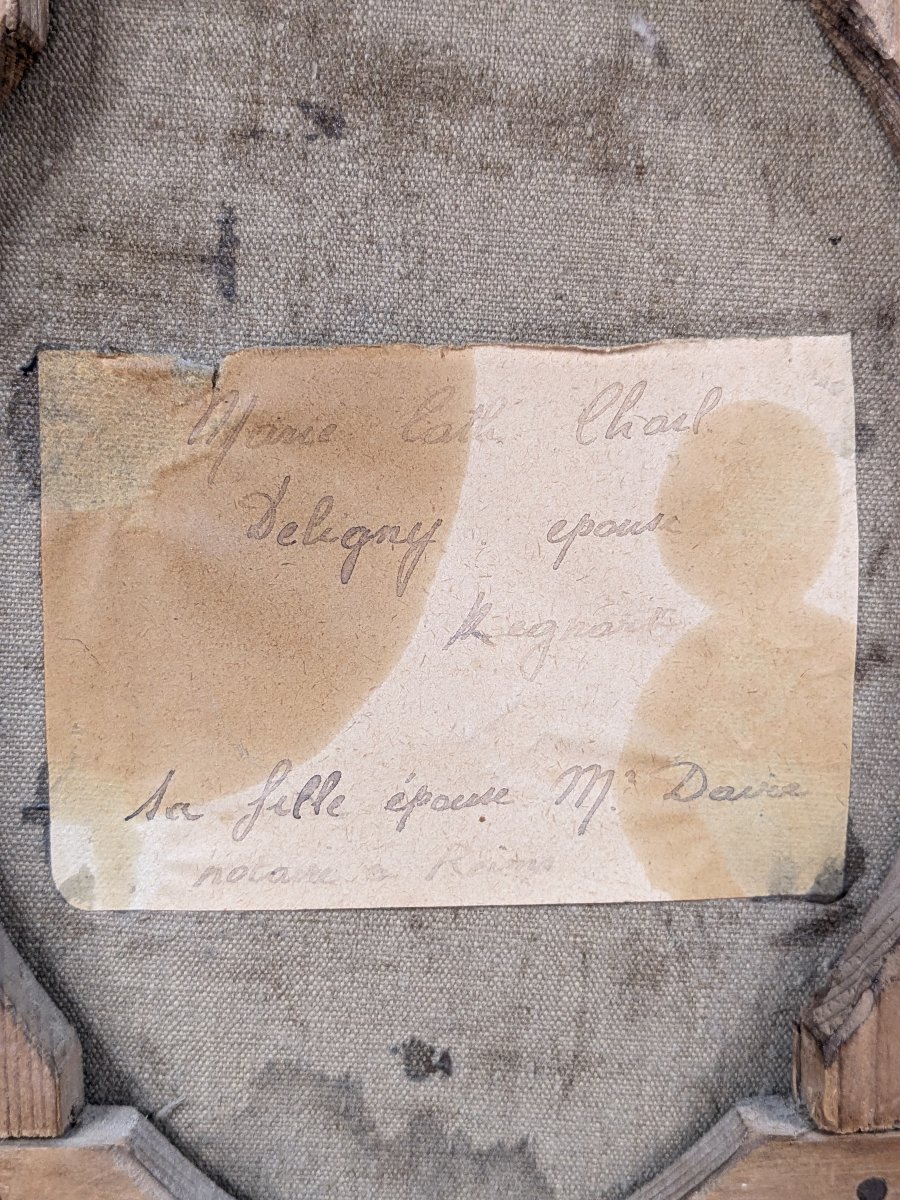 Marie Cath Charl
Deligny epouse
Regnart
sa fille épouse Mr Davie
notaire a Reims